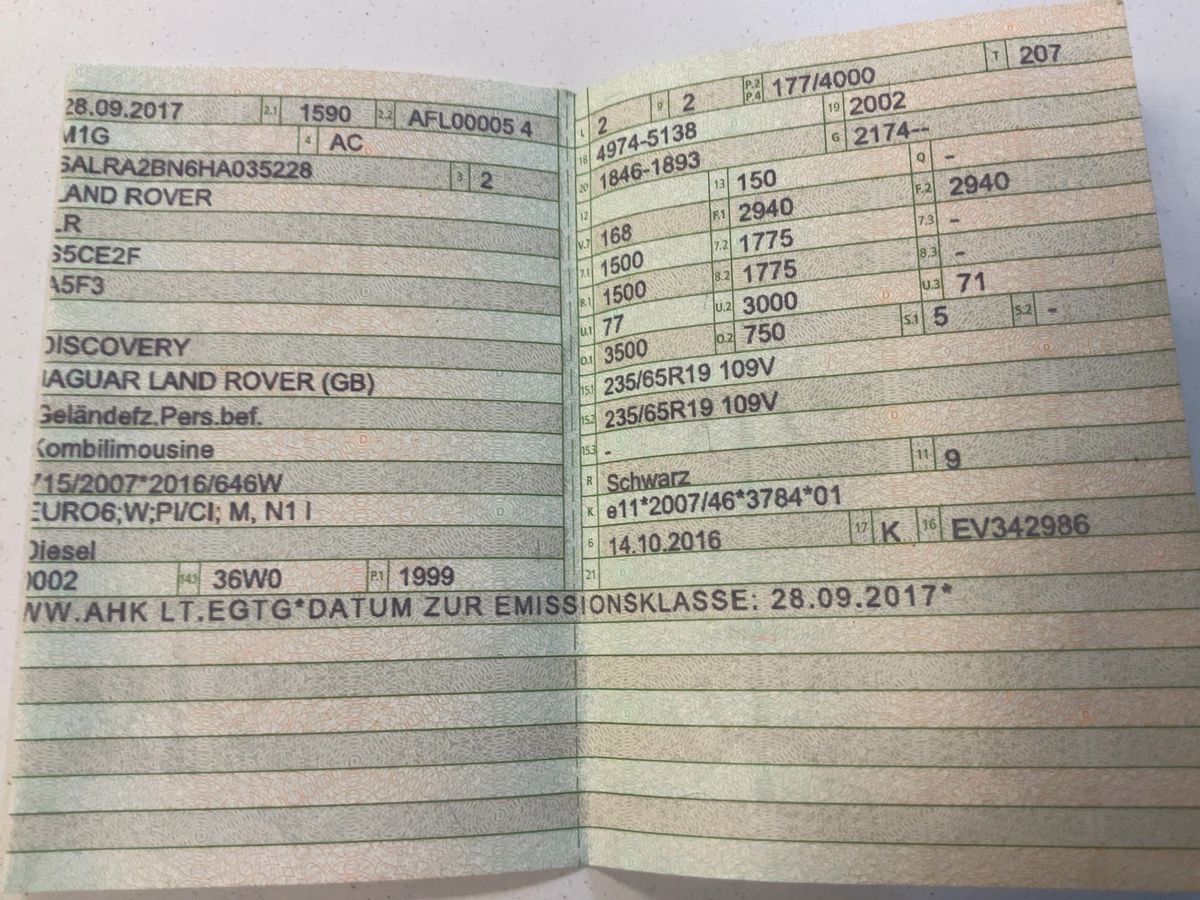 28.09.2017 2.1 1590 2.2 AFL00005 4
M1G 4 AC
SALRA2BN6HA035228 3 2
LAND ROVER
LR
S5CE2F
A5F3
DISCOVERY
JAGUAR LAND ROVER (GB)
Geländefz.Pers.bef.
Kombilimousine
715/2007*2016/646W
EURO6;W;PI/CI; M, N1 I
Diesel
0002 14.1 36W0 P.1 1999
WW.AHK LT.EGTG*DATUM ZUR EMISSIONSKLASSE: 28.09.2017*
L 2 9 2 P.2 P.4 177/4000 T 207
18 4974-5138 19 2002
20 1846-1893 G 2174--
12 13 150 Q -
V.7 168 F.1 2940 F.2 2940
7.1 1500 7.2 1775 7.3 -
8.1 1500 8.2 1775 8.3 -
U.1 77 U.2 3000 U.3 71
O.1 3500 O.2 750 S.1 5 S.2 -
15.1 235/65R19 109V
15.2 235/65R19 109V
15.3 -
R Schwarz 11 9
K e11*2007/46*3784*01
6 14.10.2016 17 K 16 EV342986
21